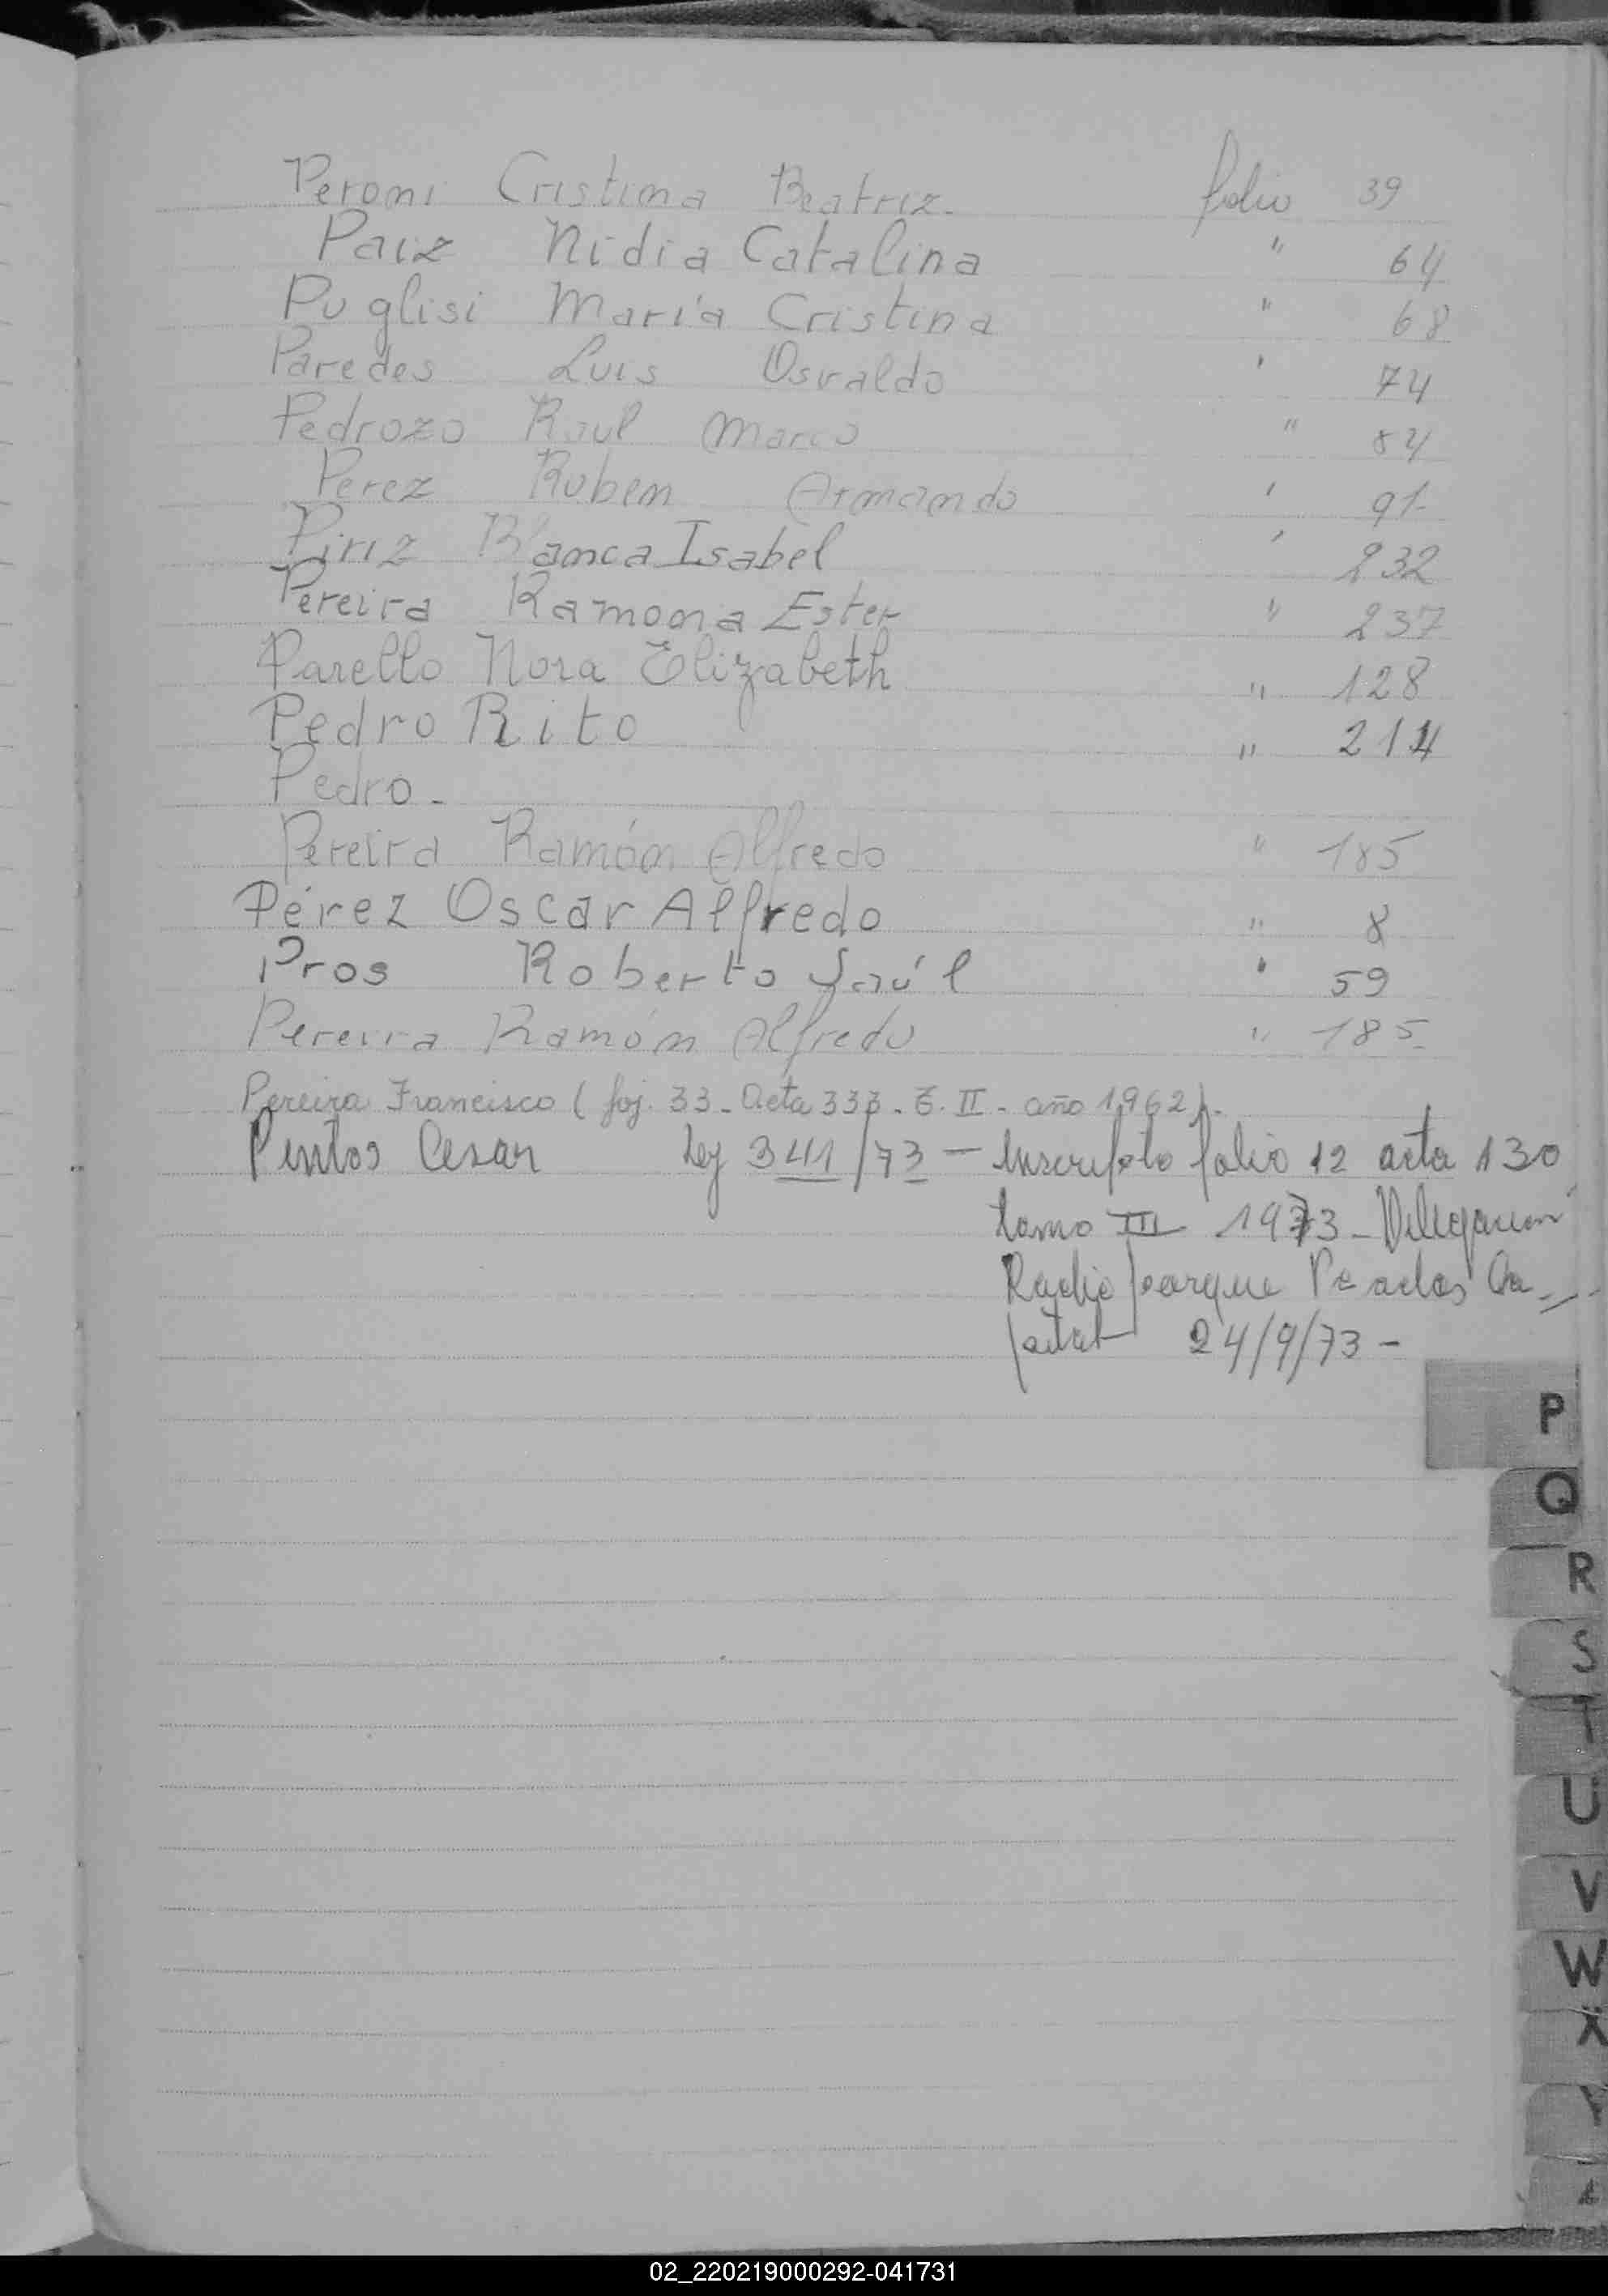 Peroni Cristina Beatriz. folio 39
Paiz Nidia Catalina " 64
Puglisi María Cristina " 68
Paredes Luis Osvaldo ' 74
Pedrozo Raul Marco " 84
Perez Ruben Armando ' 91-
Piriz Blanca Isabel ' 232
Pereira Ramona Ester " 237
Parello Nora Elizabeth " 128
Pedro Rito " 214
Pedro -
Pereira Ramón Alfredo " 185
Pérez Oscar Alfredo " 8
Pros Roberto Saúl " 59
Pereira Ramón Alfredo " 185
Pereira Francisco (foj. 33 - Acta 333 - T. II - año 1962).
Pintos Cesar Ley 341/73 - folio 12 acta 130
tomo III 1973 -
24/9/73 -
P
Q
R
S
T
U
V
W
X
Y
Z
02_220219000292-041731